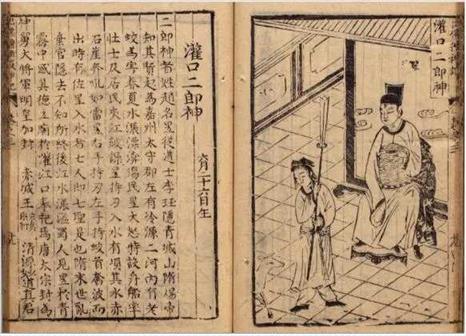 灌口二郎神
灌口二郎神
六月二十六日生
二郎神者姓趙名昱從道士李珏隱青城山隋煬帝
知其賢起為嘉州太守郡左有冷源二河內有老
蛟為害春夏水漲漂淹傷民昱大怒時設舟船率
壯士及居民夾江鼓譟昱持刃入水有頃其水赤
石崖奔吼如雷昱右手持刃左手持蛟首奮波而
出時有佐昱入水者七人即七聖是也隋末世亂
棄官隱去不知所終後江水漲溢蜀人見昱於青
霧中感其德立廟於灌江口奉祀焉唐太宗封為
神勇大將軍明皇加封 赤城王 清源妙道真君